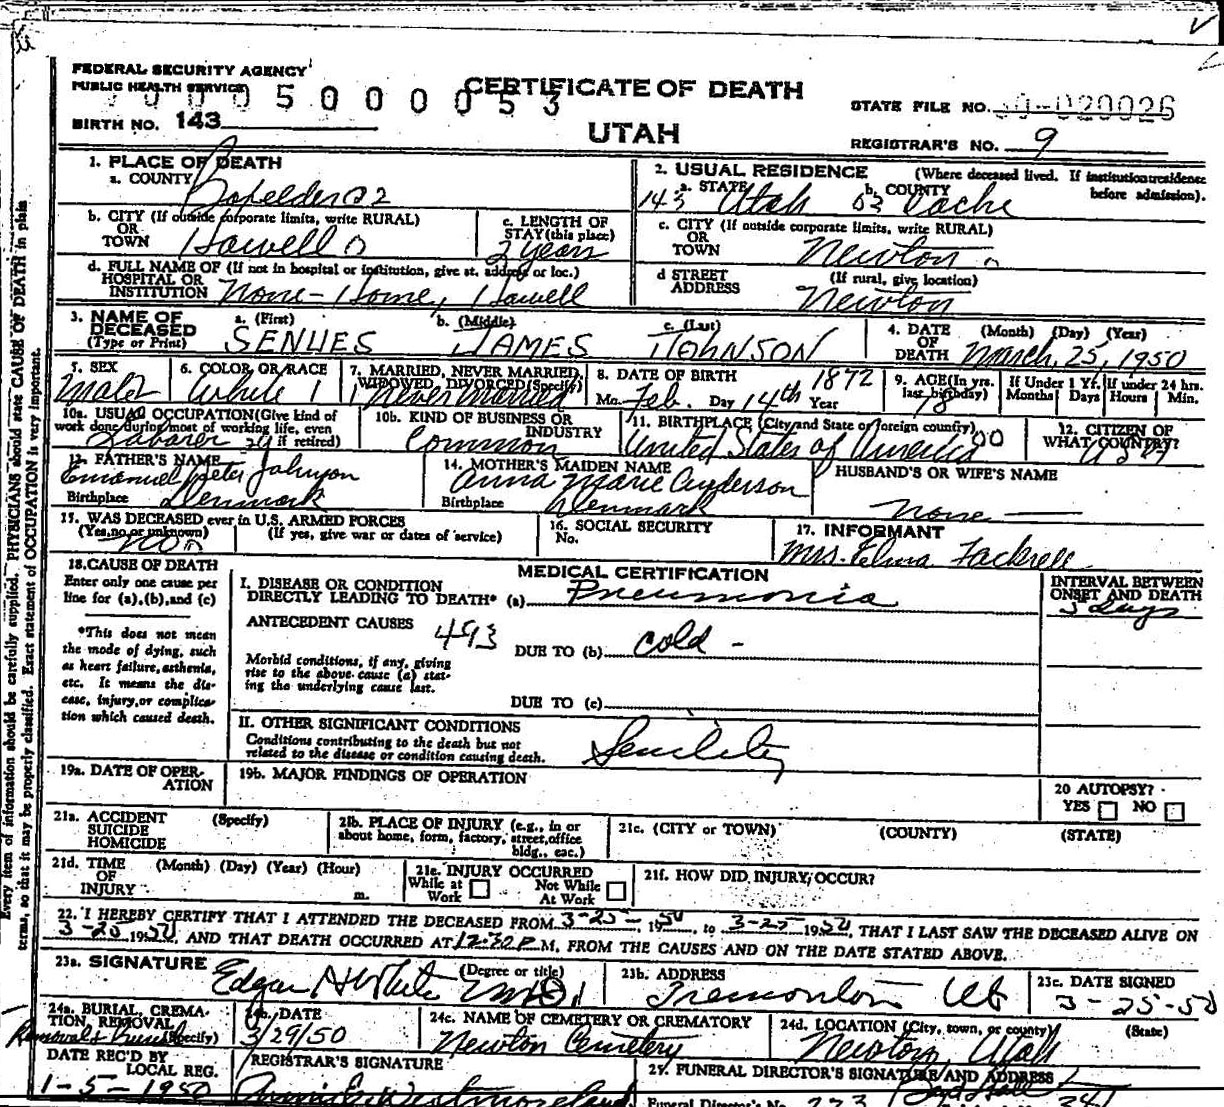 FEDERAL SECURITY AGENCY
PUBLIC HEALTH SERVICE
0005000053
CERTIFICATE OF DEATH
UTAH
STATE FILE NO. 50-020026
BIRTH NO. 143
REGISTRAR'S NO. 9
1. PLACE OF DEATH
a. COUNTY Boxelder 02
2. USUAL RESIDENCE (Where deceased lived. If institution: residence before admission).
a. STATE 143 Utah b. COUNTY 03 Cache
b. CITY (If outside corporate limits, write RURAL) OR TOWN Howell 0
c. LENGTH OF STAY (this place) 2 years
c. CITY (If outside corporate limits, write RURAL) OR TOWN Newton
d. FULL NAME OF (If not in hospital or institution, give st. address or loc.) HOSPITAL OR INSTITUTION None - Home, Howell
d STREET ADDRESS (If rural, give location) Newton
3. NAME OF DECEASED (Type or Print)
a. (First) SENUES b. (Middle) JAMES c. (Last) JOHNSON
4. DATE OF DEATH (Month) (Day) (Year) March, 25, 1950
5. SEX Male
6. COLOR OR RACE White 1
7. MARRIED, NEVER MARRIED, WIDOWED, DIVORCED (Specify) Never married
8. DATE OF BIRTH Mo. Feb. Day 14th Year 1872
9. AGE (In yrs. last birthday) 78
If Under 1 Yr. Months Days
If under 24 hrs. Hours Min.
10a. USUAL OCCUPATION (Give kind of work done during most of working life, even if retired) Laborer
10b. KIND OF BUSINESS OR INDUSTRY Common
11. BIRTHPLACE (City and State or foreign country) United States of America 00
12. CITIZEN OF WHAT COUNTRY? USA
13. FATHER'S NAME Emanuel Peter Johnson
Birthplace Denmark
14. MOTHER'S MAIDEN NAME Anna Marie Anderson
Birthplace Denmark
HUSBAND'S OR WIFE'S NAME
none
15. WAS DECEASED ever in U.S. ARMED FORCES
(Yes, no or unknown) (If yes, give war or dates of service)
no
16. SOCIAL SECURITY No.
17. INFORMANT
Mrs. Elma Fackrell
18. CAUSE OF DEATH
Enter only one cause per line for (a), (b), and (c)
*This does not mean the mode of dying, such as heart failure, asthenia, etc. It means the disease, injury, or complication which caused death.
MEDICAL CERTIFICATION
I. DISEASE OR CONDITION DIRECTLY LEADING TO DEATH* (a) Pneumonia
INTERVAL BETWEEN ONSET AND DEATH
3 days
ANTECEDENT CAUSES 493
DUE TO (b) cold -
Morbid conditions, if any, giving rise to the above cause (a) stating the underlying cause last.
DUE TO (c)
II. OTHER SIGNIFICANT CONDITIONS
Conditions contributing to the death but not related to the disease or condition causing death.
Senility
19a. DATE OF OPERATION
19b. MAJOR FINDINGS OF OPERATION
20 AUTOPSY?
YES NO
21a. ACCIDENT SUICIDE HOMICIDE (Specify)
21b. PLACE OF INJURY (e.g., in or about home, form, factory, street, office bldg., eac.)
21c. (CITY or TOWN) (COUNTY) (STATE)
21d. TIME OF INJURY (Month) (Day) (Year) (Hour) m.
21e. INJURY OCCURRED
While at Work Not While At Work
21f. HOW DID INJURY OCCUR?
22. I HEREBY CERTIFY THAT I ATTENDED THE DECEASED FROM 3-25-, 1950, to 3-25-1950, THAT I LAST SAW THE DECEASED ALIVE ON
3-25 1950, AND THAT DEATH OCCURRED AT 12:30 P M, FROM THE CAUSES AND ON THE DATE STATED ABOVE.
23a. SIGNATURE (Degree or title)
Edgar White M.D.
23b. ADDRESS
Tremonton Ut
23c. DATE SIGNED
3-25-50
24a. BURIAL, CREMATION, REMOVAL (Specify)
Removal & Burial
24b. DATE
3/29/50
24c. NAME OF CEMETERY OR CREMATORY
Newton Cemetery
24d. LOCATION (City, town, or county) (State)
Newton, Utah
DATE REC'D BY LOCAL REG.
1-5-1950
REGISTRAR'S SIGNATURE
Westmoreland
25. FUNERAL DIRECTOR'S SIGNATURE AND ADDRESS
Funeral Director's No. 273
Every item of information should be carefully supplied. PHYSICIANS should state CAUSE OF DEATH in plain
terms, so that it may be properly classified. Exact statement of OCCUPATION is very important.